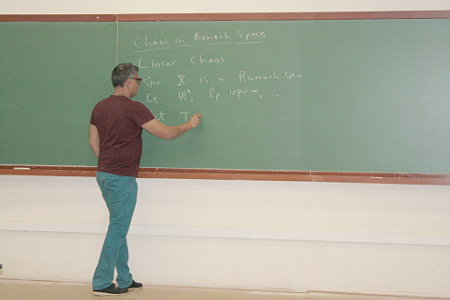 Chaos in Banach Spaces
Linear Chaos
X is a Banach Spa
Ex ℝⁿ, ℓp 1≤p<∞, ...
T